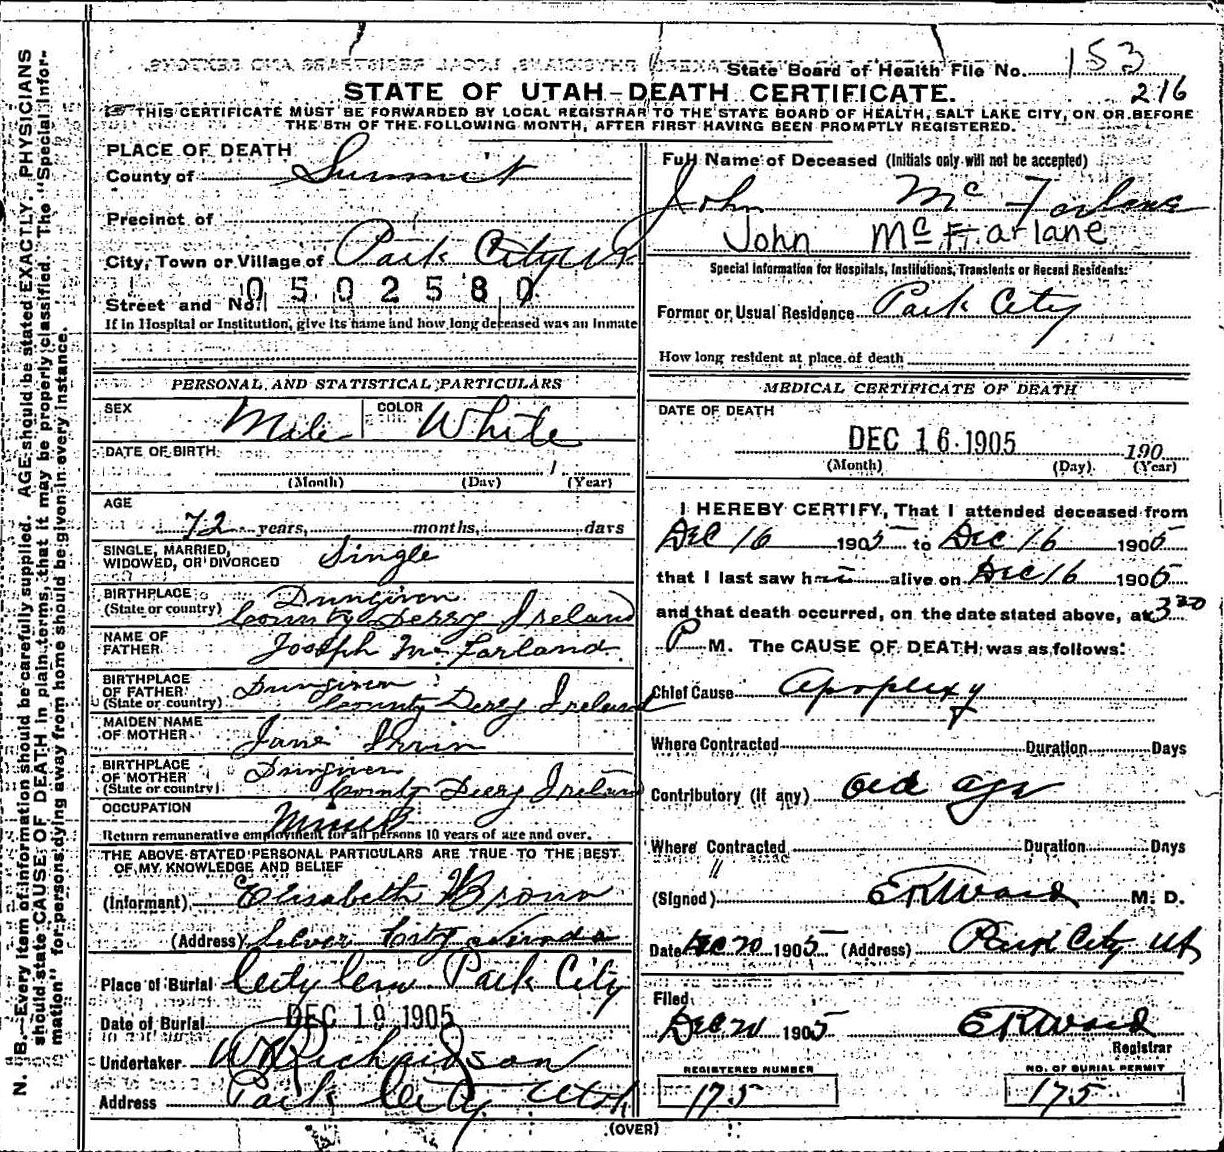 State Board of Health File No. 153
STATE OF UTAH—DEATH CERTIFICATE.
216
THIS CERTIFICATE MUST BE FORWARDED BY LOCAL REGISTRAR TO THE STATE BOARD OF HEALTH, SALT LAKE CITY, ON OR BEFORE
THE 5TH OF THE FOLLOWING MONTH, AFTER FIRST HAVING BEEN PROMPTLY REGISTERED.
PLACE OF DEATH
County of Summit
Precinct of
City, Town or Village of Park City Ut
0502580
Street and No.
If in Hospital or Institution, give its name and how long deceased was an inmate
PERSONAL AND STATISTICAL PARTICULARS
SEX Male COLOR White
DATE OF BIRTH
(Month) (Day) (Year)
AGE
72 years, months, days
SINGLE, MARRIED, WIDOWED, OR DIVORCED Single
BIRTHPLACE (State or country) Dungiven
County Derry Ireland
NAME OF FATHER Joseph McFarland
BIRTHPLACE OF FATHER (State or country) Dungiven
County Derry Ireland
MAIDEN NAME OF MOTHER Jane Irvin
BIRTHPLACE OF MOTHER (State or country) Dungiven
County Derry Ireland
OCCUPATION Miner
Return remunerative employment for all persons 10 years of age and over.
THE ABOVE STATED PERSONAL PARTICULARS ARE TRUE TO THE BEST
OF MY KNOWLEDGE AND BELIEF
(Informant) Elisabeth Brown
(Address) Silver City Nevada
Place of Burial City Cem Park City
Date of Burial DEC 19 1905
Undertaker W Richardson
Address Park City Utah
Full Name of Deceased (Initials only will not be accepted)
John McFarlane
John McFarlane
Special Information for Hospitals, Institutions, Transients or Recent Residents:
Former or Usual Residence Park City
How long resident at place of death
MEDICAL CERTIFICATE OF DEATH
DATE OF DEATH
DEC 16 1905 190
(Month) (Day) (Year)
I HEREBY CERTIFY, That I attended deceased from
Dec 16 1905 to Dec 16 1905
that I last saw him alive on Dec 16 1905
and that death occurred, on the date stated above, at 3 30
P M. The CAUSE OF DEATH was as follows:
Chief Cause Apoplexy
Where Contracted Duration Days
Contributory (if any) old age
Where Contracted Duration Days
"
(Signed) ER Ward M. D.
Date Dec 20 1905 (Address) Park City Ut
Filed
Dec 20 1905 ER Ward
Registrar
REGISTERED NUMBER
175
NO. OF BURIAL PERMIT
175
(OVER)
N. B.—Every item of information should be carefully supplied. AGE should be stated EXACTLY. PHYSICIANS
should state CAUSE OF DEATH in plain terms, that it may be properly classified. The "Special Infor-
mation" for persons dying away from home should be given in every instance.